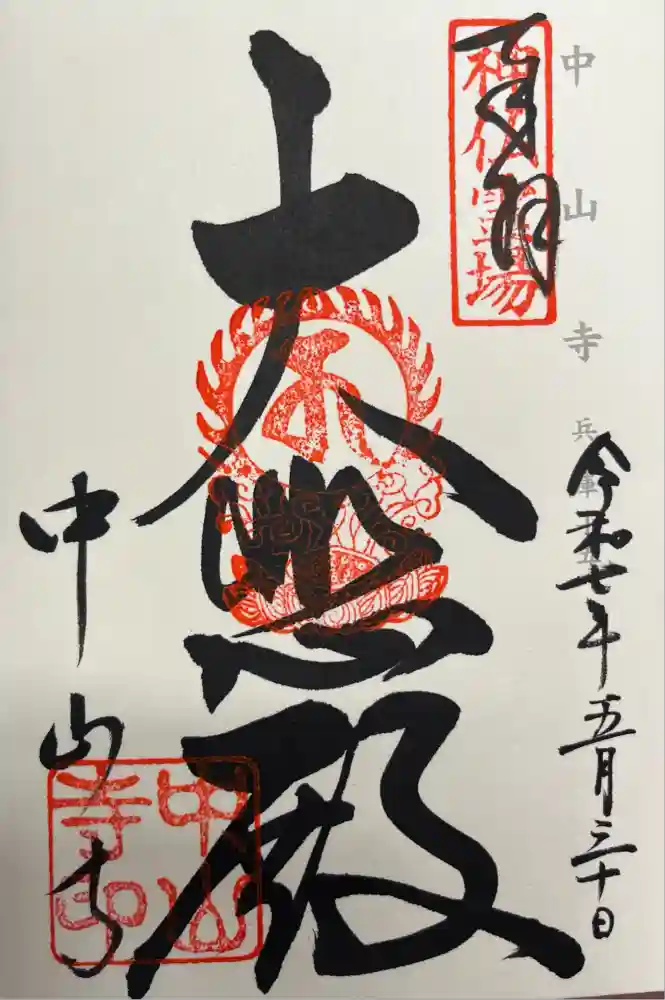 中山寺 兵庫
奉拝
神仏霊場
令和七年五月三十日
大悲殿
中山寺
中山寺印